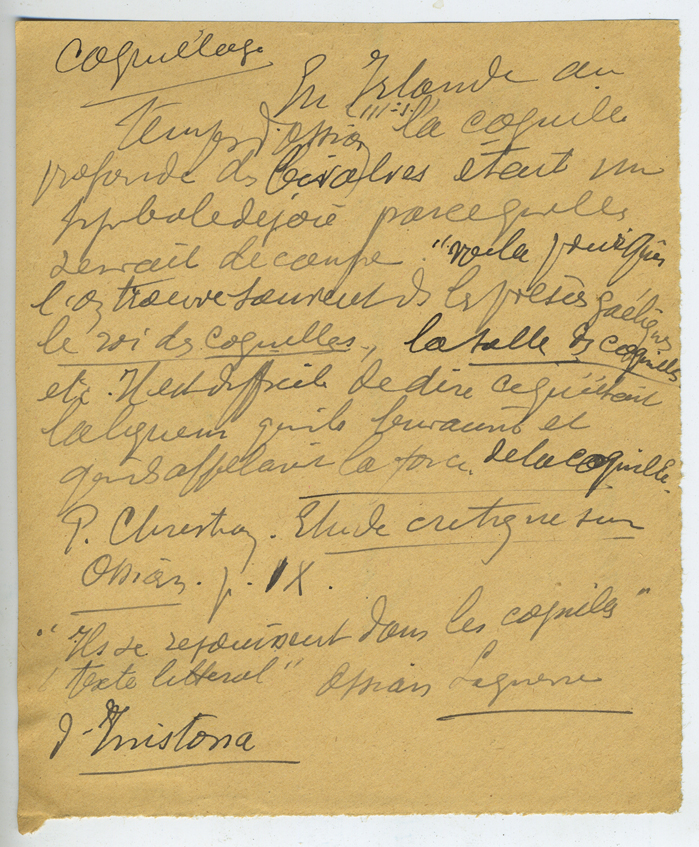 Coquillage
En Irlande au
temps d'Ossian (III-s.) la coquille
profonde des bivalves était un
symbole de joie parce qu'elle
servait de coupe. "voilà pourquoi
l'on trouve souvent ds les poésies gaéliques
le roi des coquilles, la salle des coquilles
etc. Il est difficile de dire ce qu'était
la liqueur qu'ils buvaient et
qu'ils appelaient la force de la coquille.
P. Christian. Etude critique sur
Ossian. p. IX.
"Ils se réjouissent dans les coquilles"
texte littéral" Ossian La guerre
d'Inistona